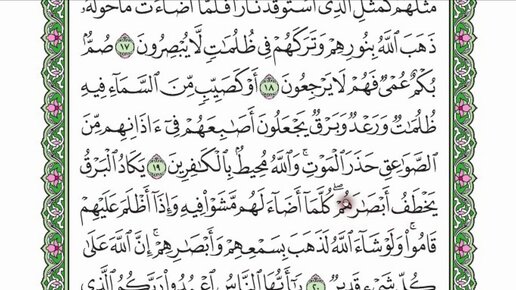 مَثَلُهُمْ كَمَثَلِ ٱلَّذِى ٱسْتَوْقَدَ نَارًا فَلَمَّآ أَضَآءَتْ مَا حَوْلَهُۥ
ذَهَبَ ٱللَّهُ بِنُورِهِمْ وَتَرَكَهُمْ فِى ظُلُمَٰتٍ لَّا يُبْصِرُونَ ١٧ صُمٌّۢ
بُكْمٌ عُمْىٌ فَهُمْ لَا يَرْجِعُونَ ١٨ أَوْ كَصَيِّبٍ مِّنَ ٱلسَّمَآءِ فِيهِ
ظُلُمَٰتٌ وَرَعْدٌ وَبَرْقٌ يَجْعَلُونَ أَصَٰبِعَهُمْ فِىٓ ءَاذَانِهِم مِّنَ
ٱلصَّوَٰعِقِ حَذَرَ ٱلْمَوْتِ ۚ وَٱللَّهُ مُحِيطٌۢ بِٱلْكَٰفِرِينَ ١٩ يَكَادُ ٱلْبَرْقُ
يَخْطَفُ أَبْصَٰرَهُمْ ۖ كُلَّمَآ أَضَآءَ لَهُم مَّشَوْا۟ فِيهِ وَإِذَآ أَظْلَمَ عَلَيْهِمْ
قَامُوا۟ ۚ وَلَوْ شَآءَ ٱللَّهُ لَذَهَبَ بِسَمْعِهِمْ وَأَبْصَٰرِهِمْ ۚ إِنَّ ٱللَّهَ عَلَىٰ
كُلِّ شَىْءٍ قَدِيرٌ ٢٠ يَٰٓأَيُّهَا ٱلنَّاسُ ٱعْبُدُوا۟ رَبَّكُمُ ٱلَّذِى